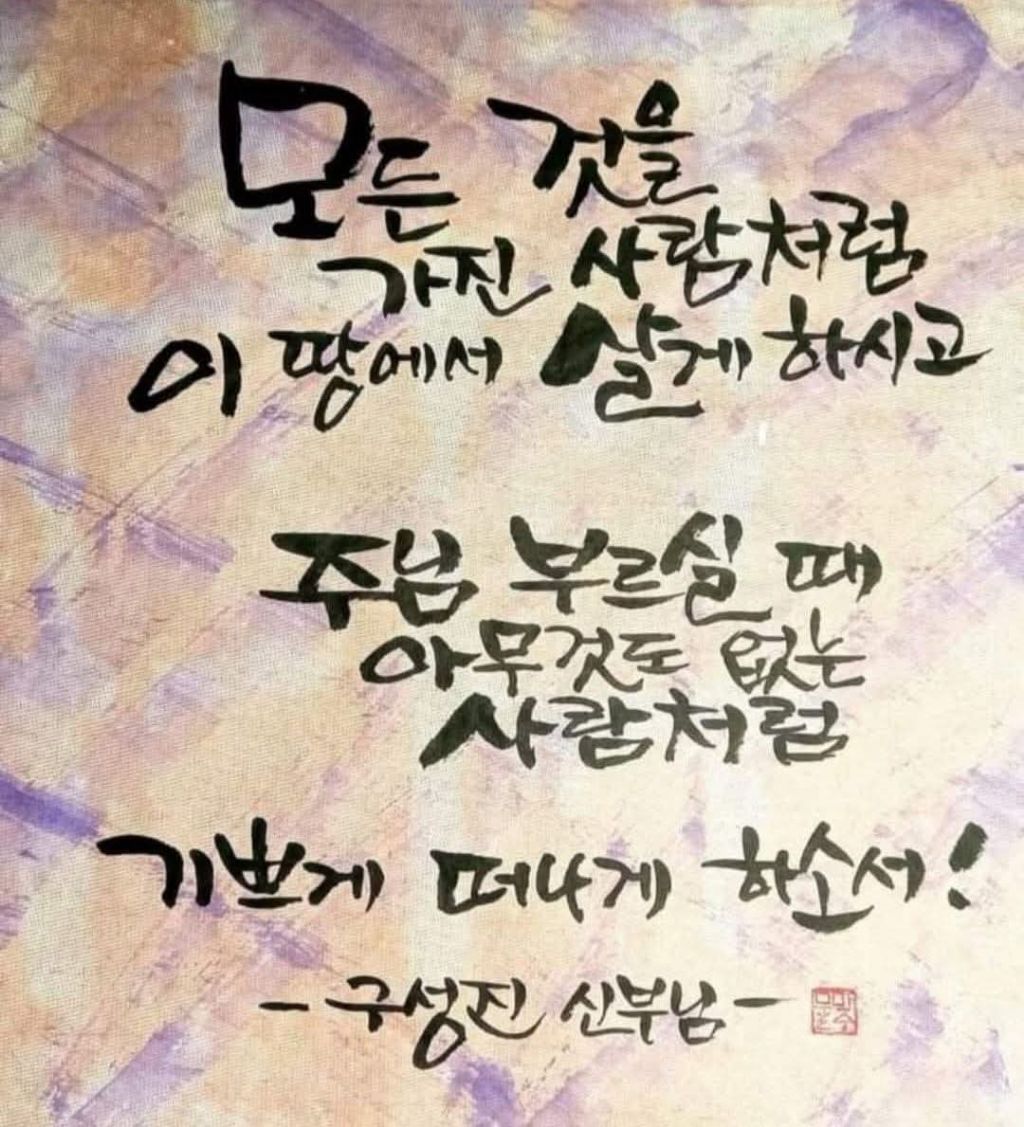 모든 것을
가진 사람처럼
이 땅에서 살게 하시고
주님 부르실 때
아무것도 없는
사람처럼
기쁘게 떠나게 하소서!
- 구성진 신부님 -